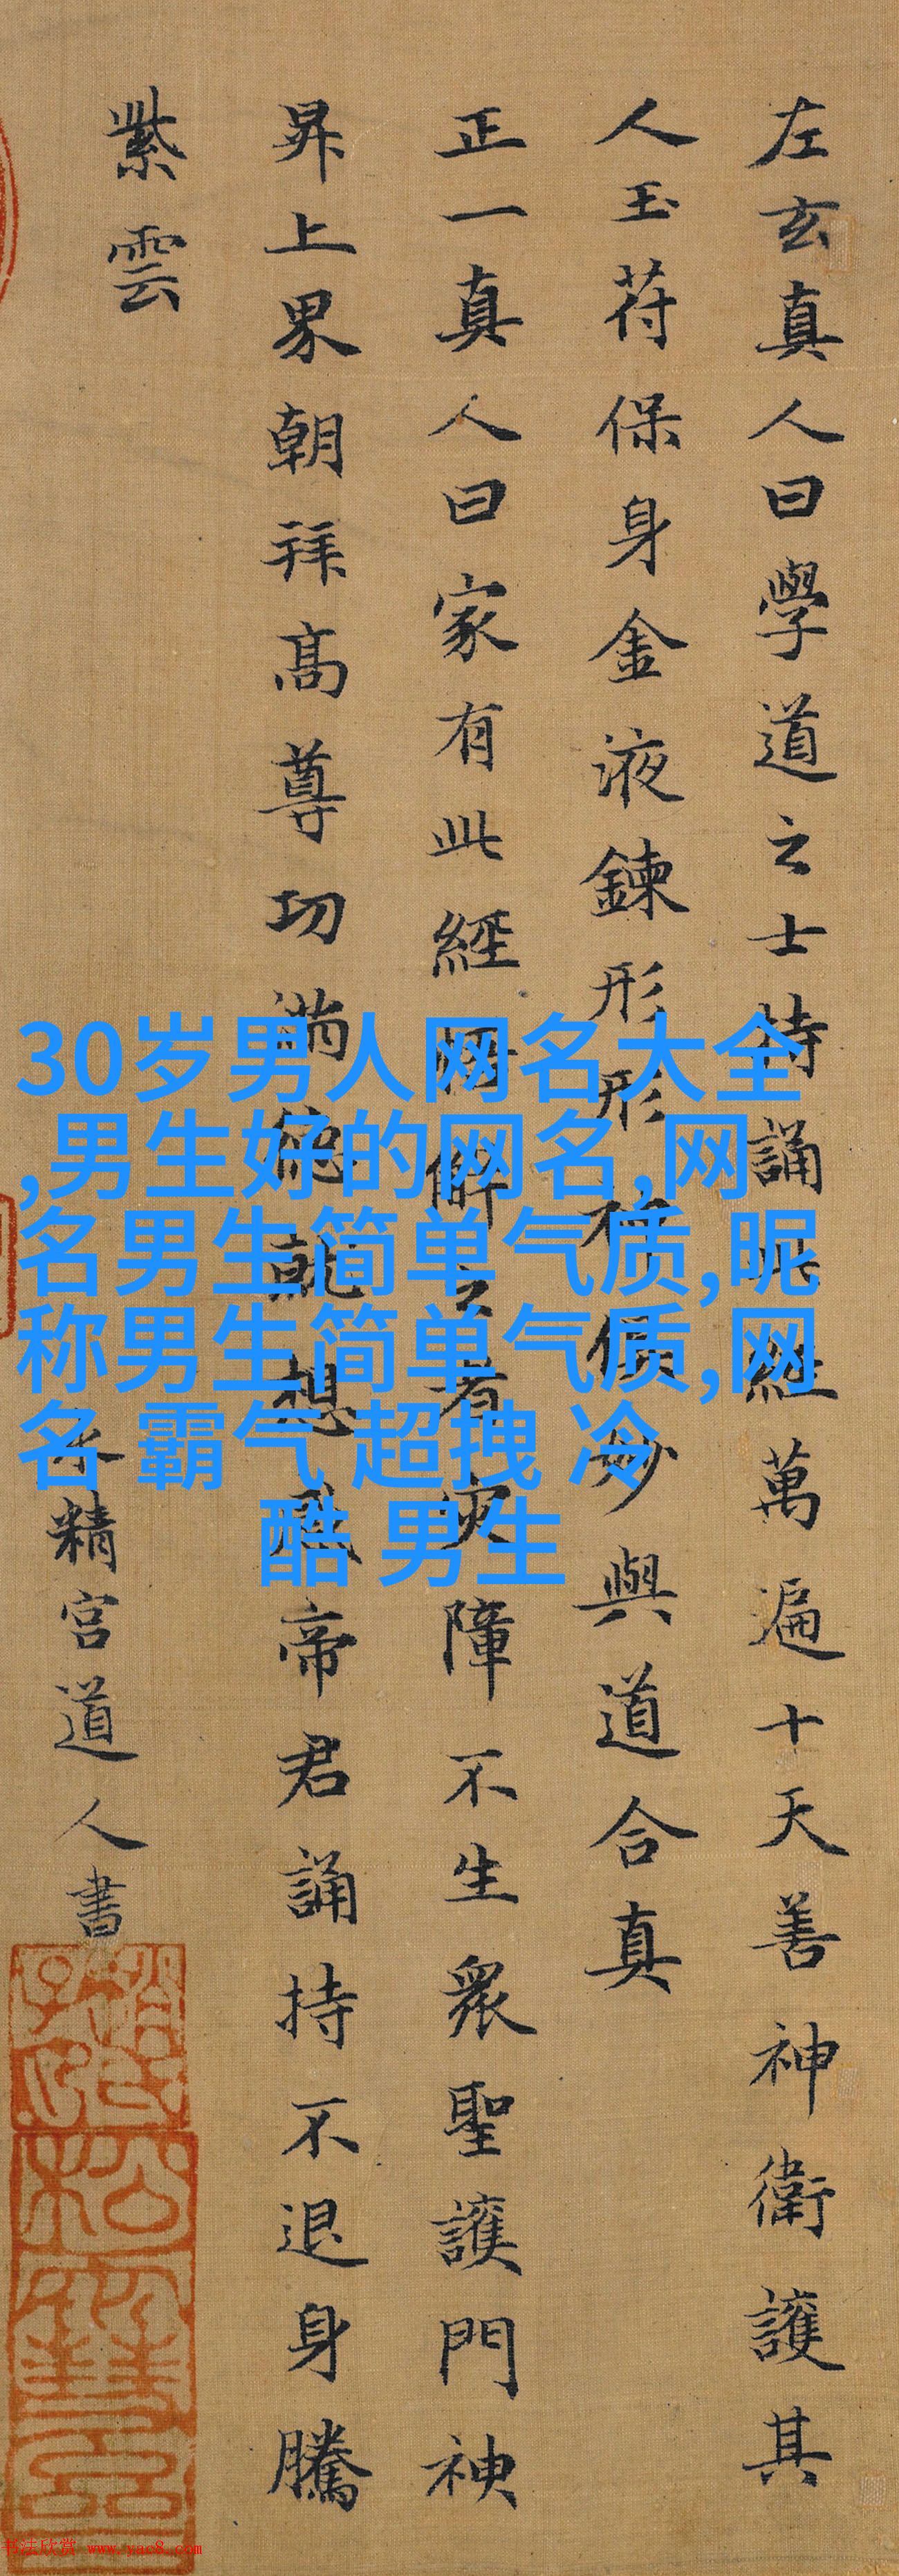 左玄真人曰學道之士持誦此經萬遍十天善神衛護其
人玉苻保身金液鍊形形神俱妙與道合真
正一真人曰家有此經悟解之者灾障不生衆聖護門神
昇上界朝拜高尊功滿德就想感帝君誦持不退身騰
紫雲
水精宮道人書
30岁男人网名大全
,男生好的网名,网
名男生简单气质,昵
称男生简单气质,网
名 霸气 超拽 冷
酷 男生
书法欣赏 www.yac8.com